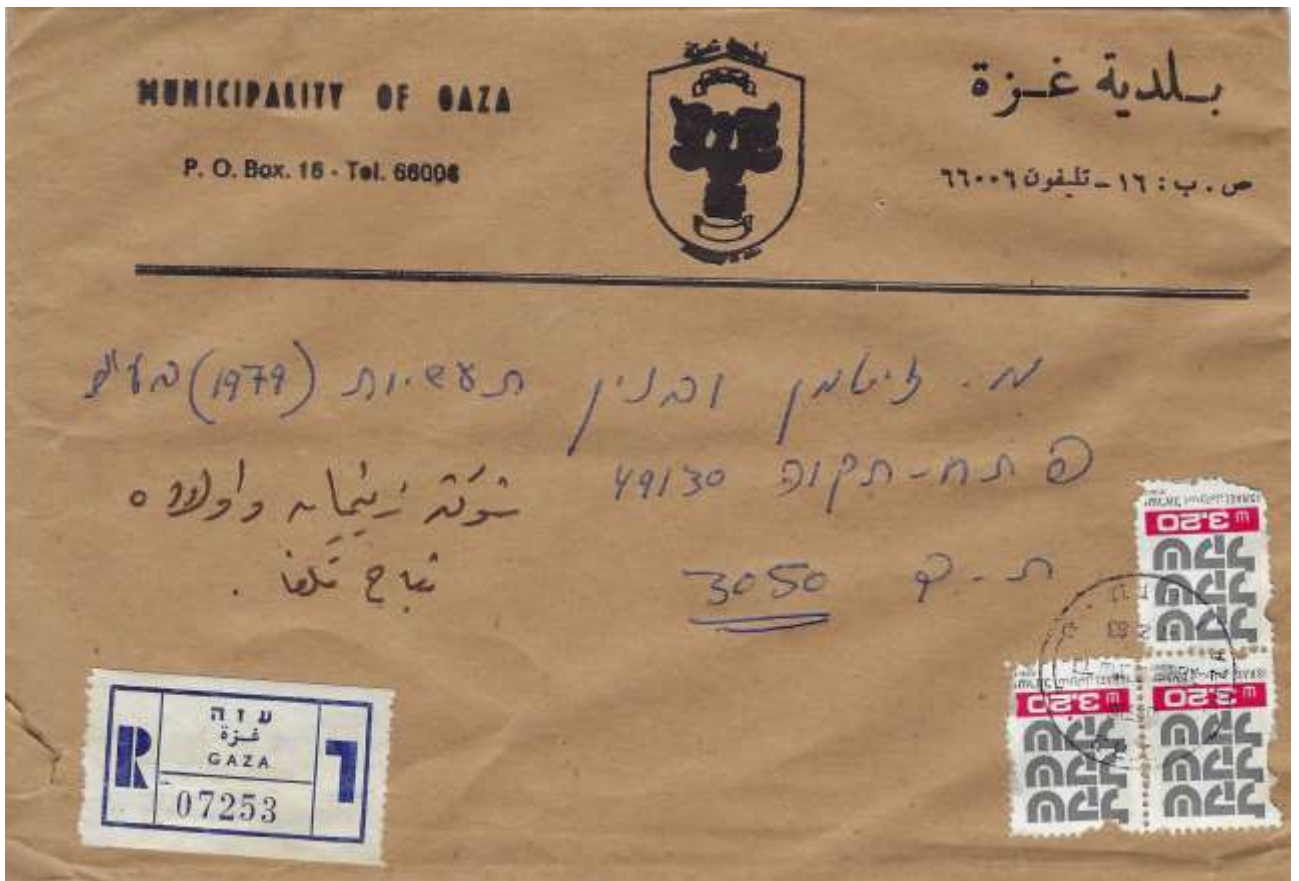 MUNICIPALITY OF GAZA
P. O. Box. 16 - Tel. 66006
بلدية غزة
ص . ب : ١٦ ـ تليفون ٦٦٠٠٦
מ. זיטמן ובניו תעשיות (1979) בע"מ
פתח-תקוה 49130
ת-ד 3050
شركة زيتمان واولاده
عزה
غزة
GAZA
R
ר
07253
3.20
ISRAEL
3.20
ISRAEL
3.20